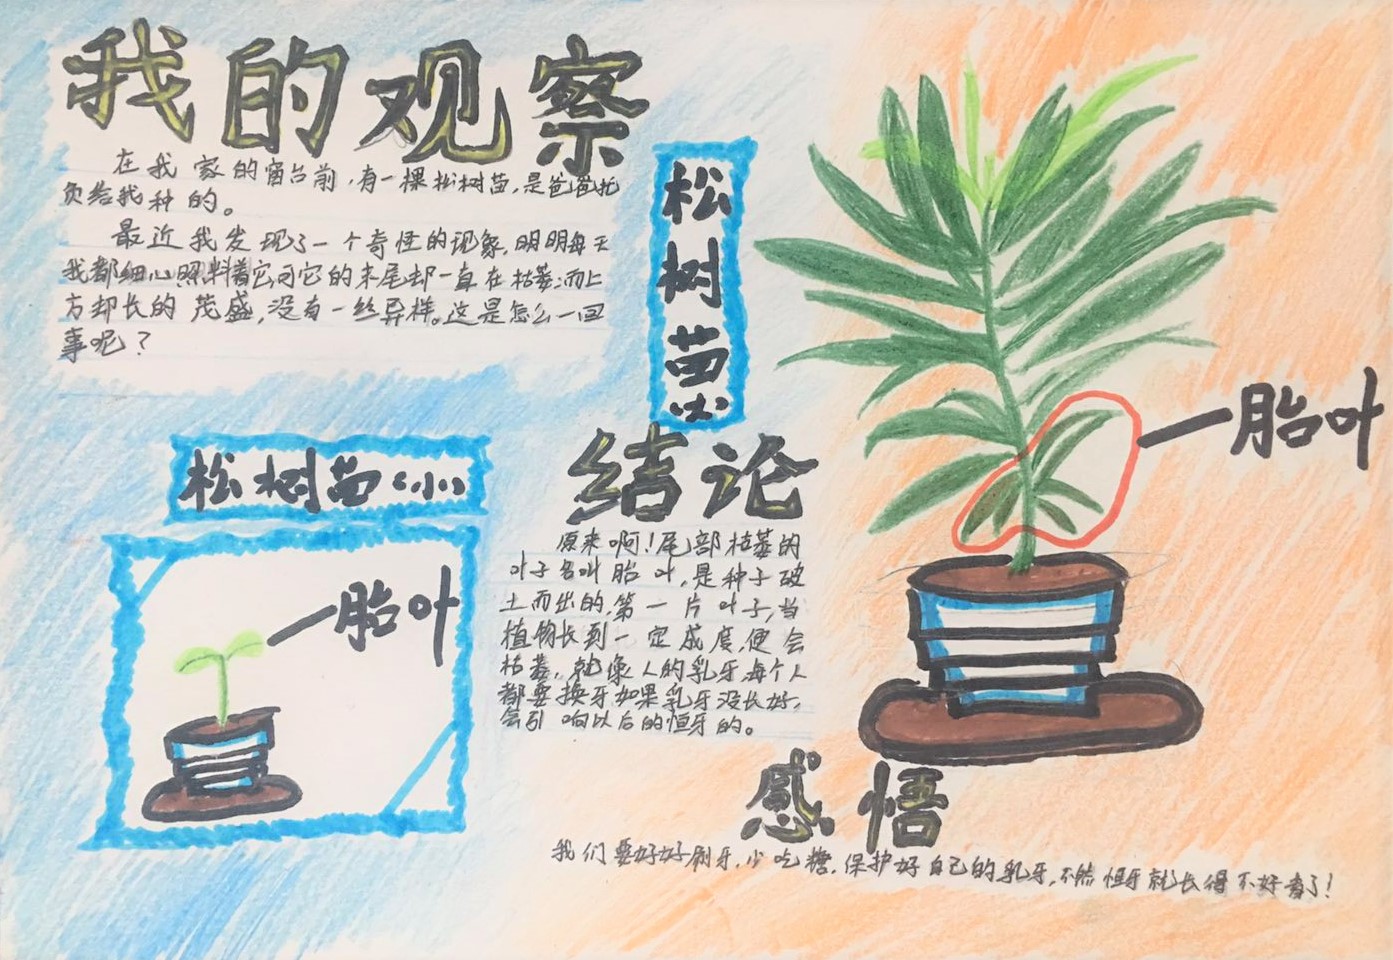 我的观察
在我家的窗台前，有一棵松树苗，是爸爸托
负给我种的。
最近我发现了一个奇怪的现象，明明每天
我都细心照料着它可它的末尾却一直在枯萎；而上
方却长的茂盛，没有一丝异样。这是怎么一回
事呢？
松树苗
松树苗（小）
一胎叶
一胎叶
结论
原来啊！尾部枯萎的
叶子名叫胎叶，是种子破
土而出的，第一片叶子，当
植物长到一定成度，便会
枯萎，就像人的乳牙，每个人
都要换牙如果乳牙没长好，
会引响以后的恒牙的。
感悟
我们要好好刷牙，少吃糖，保护好自己的乳牙，不然恒牙就长得不好看了！